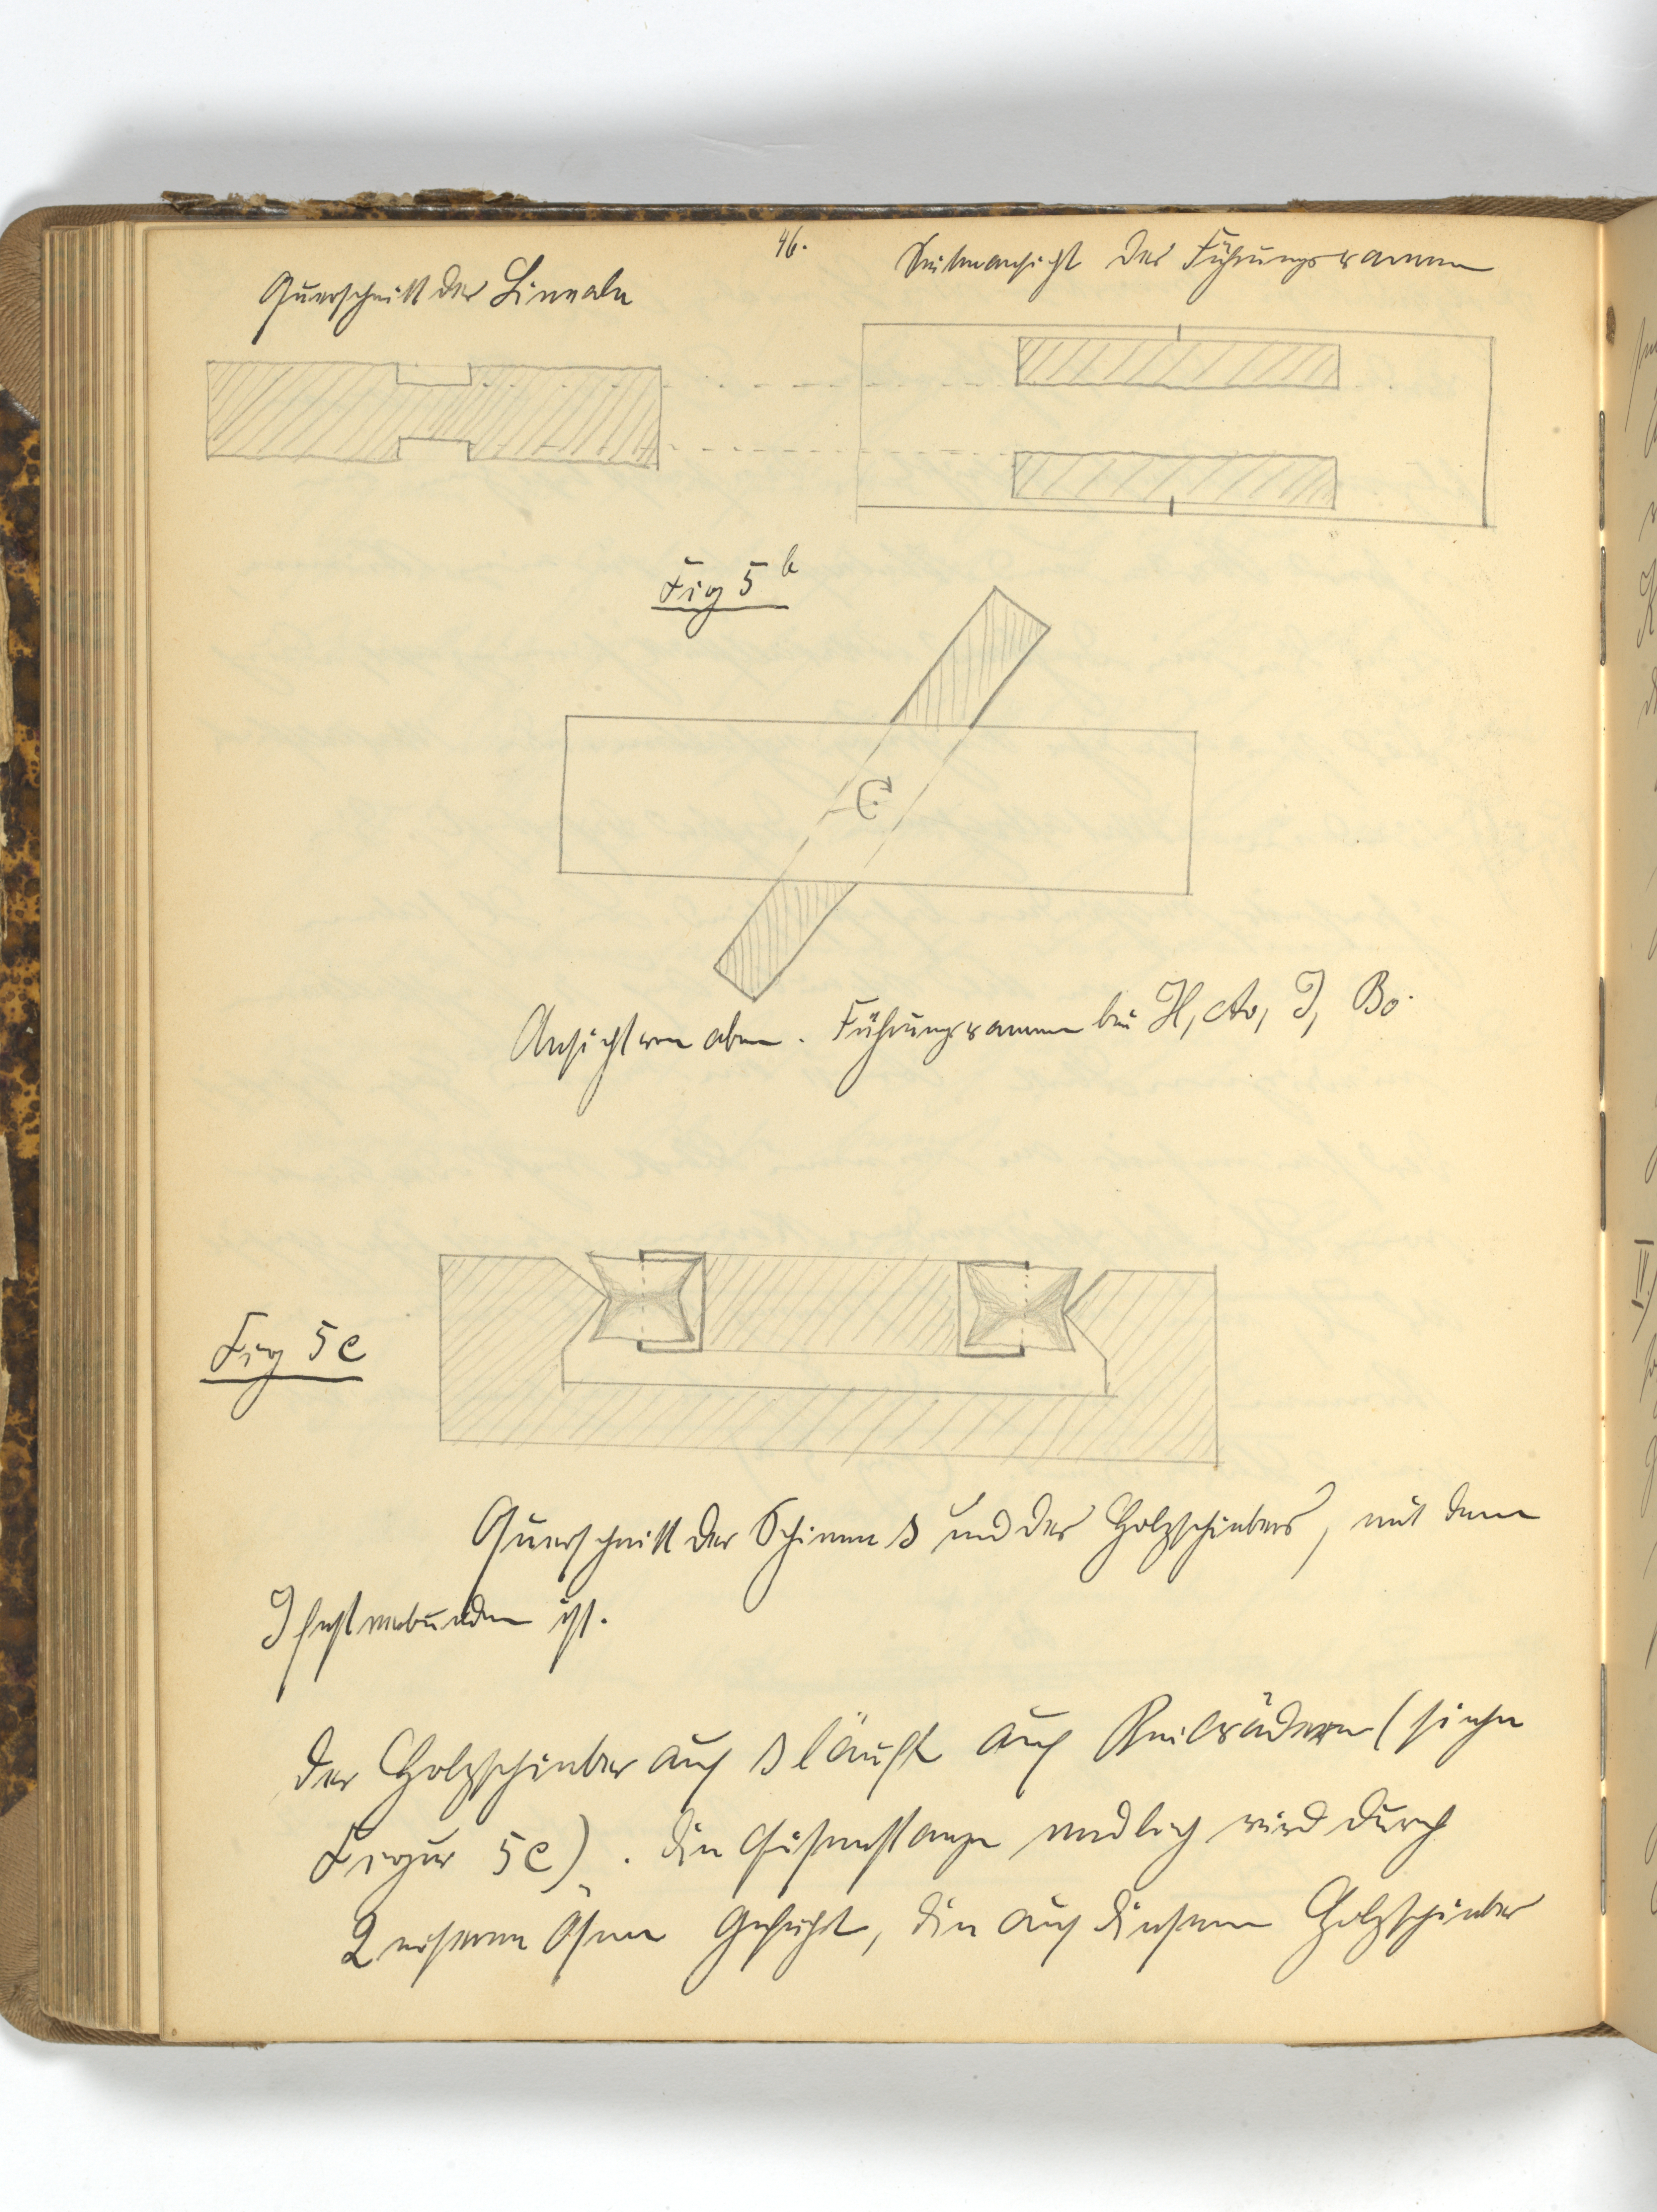 46.
Querschnitt der Lineale
Seitenansicht der Führungsrammen
Fig 5 b
Ansicht von oben. Führungsrammen bei H, Ao, J, Bo.
Fig 5 c
Querschnitt der Schienen s und des Holzschiebers, mit dem
J fest verbunden ist.
Der Holzschieber auf s läuft auf Keilrädern (siehe
Figur 5c). Die Eisenstange endlich wird durch
2 eiserne Ösen geführt, die auf diesem Holzschieber